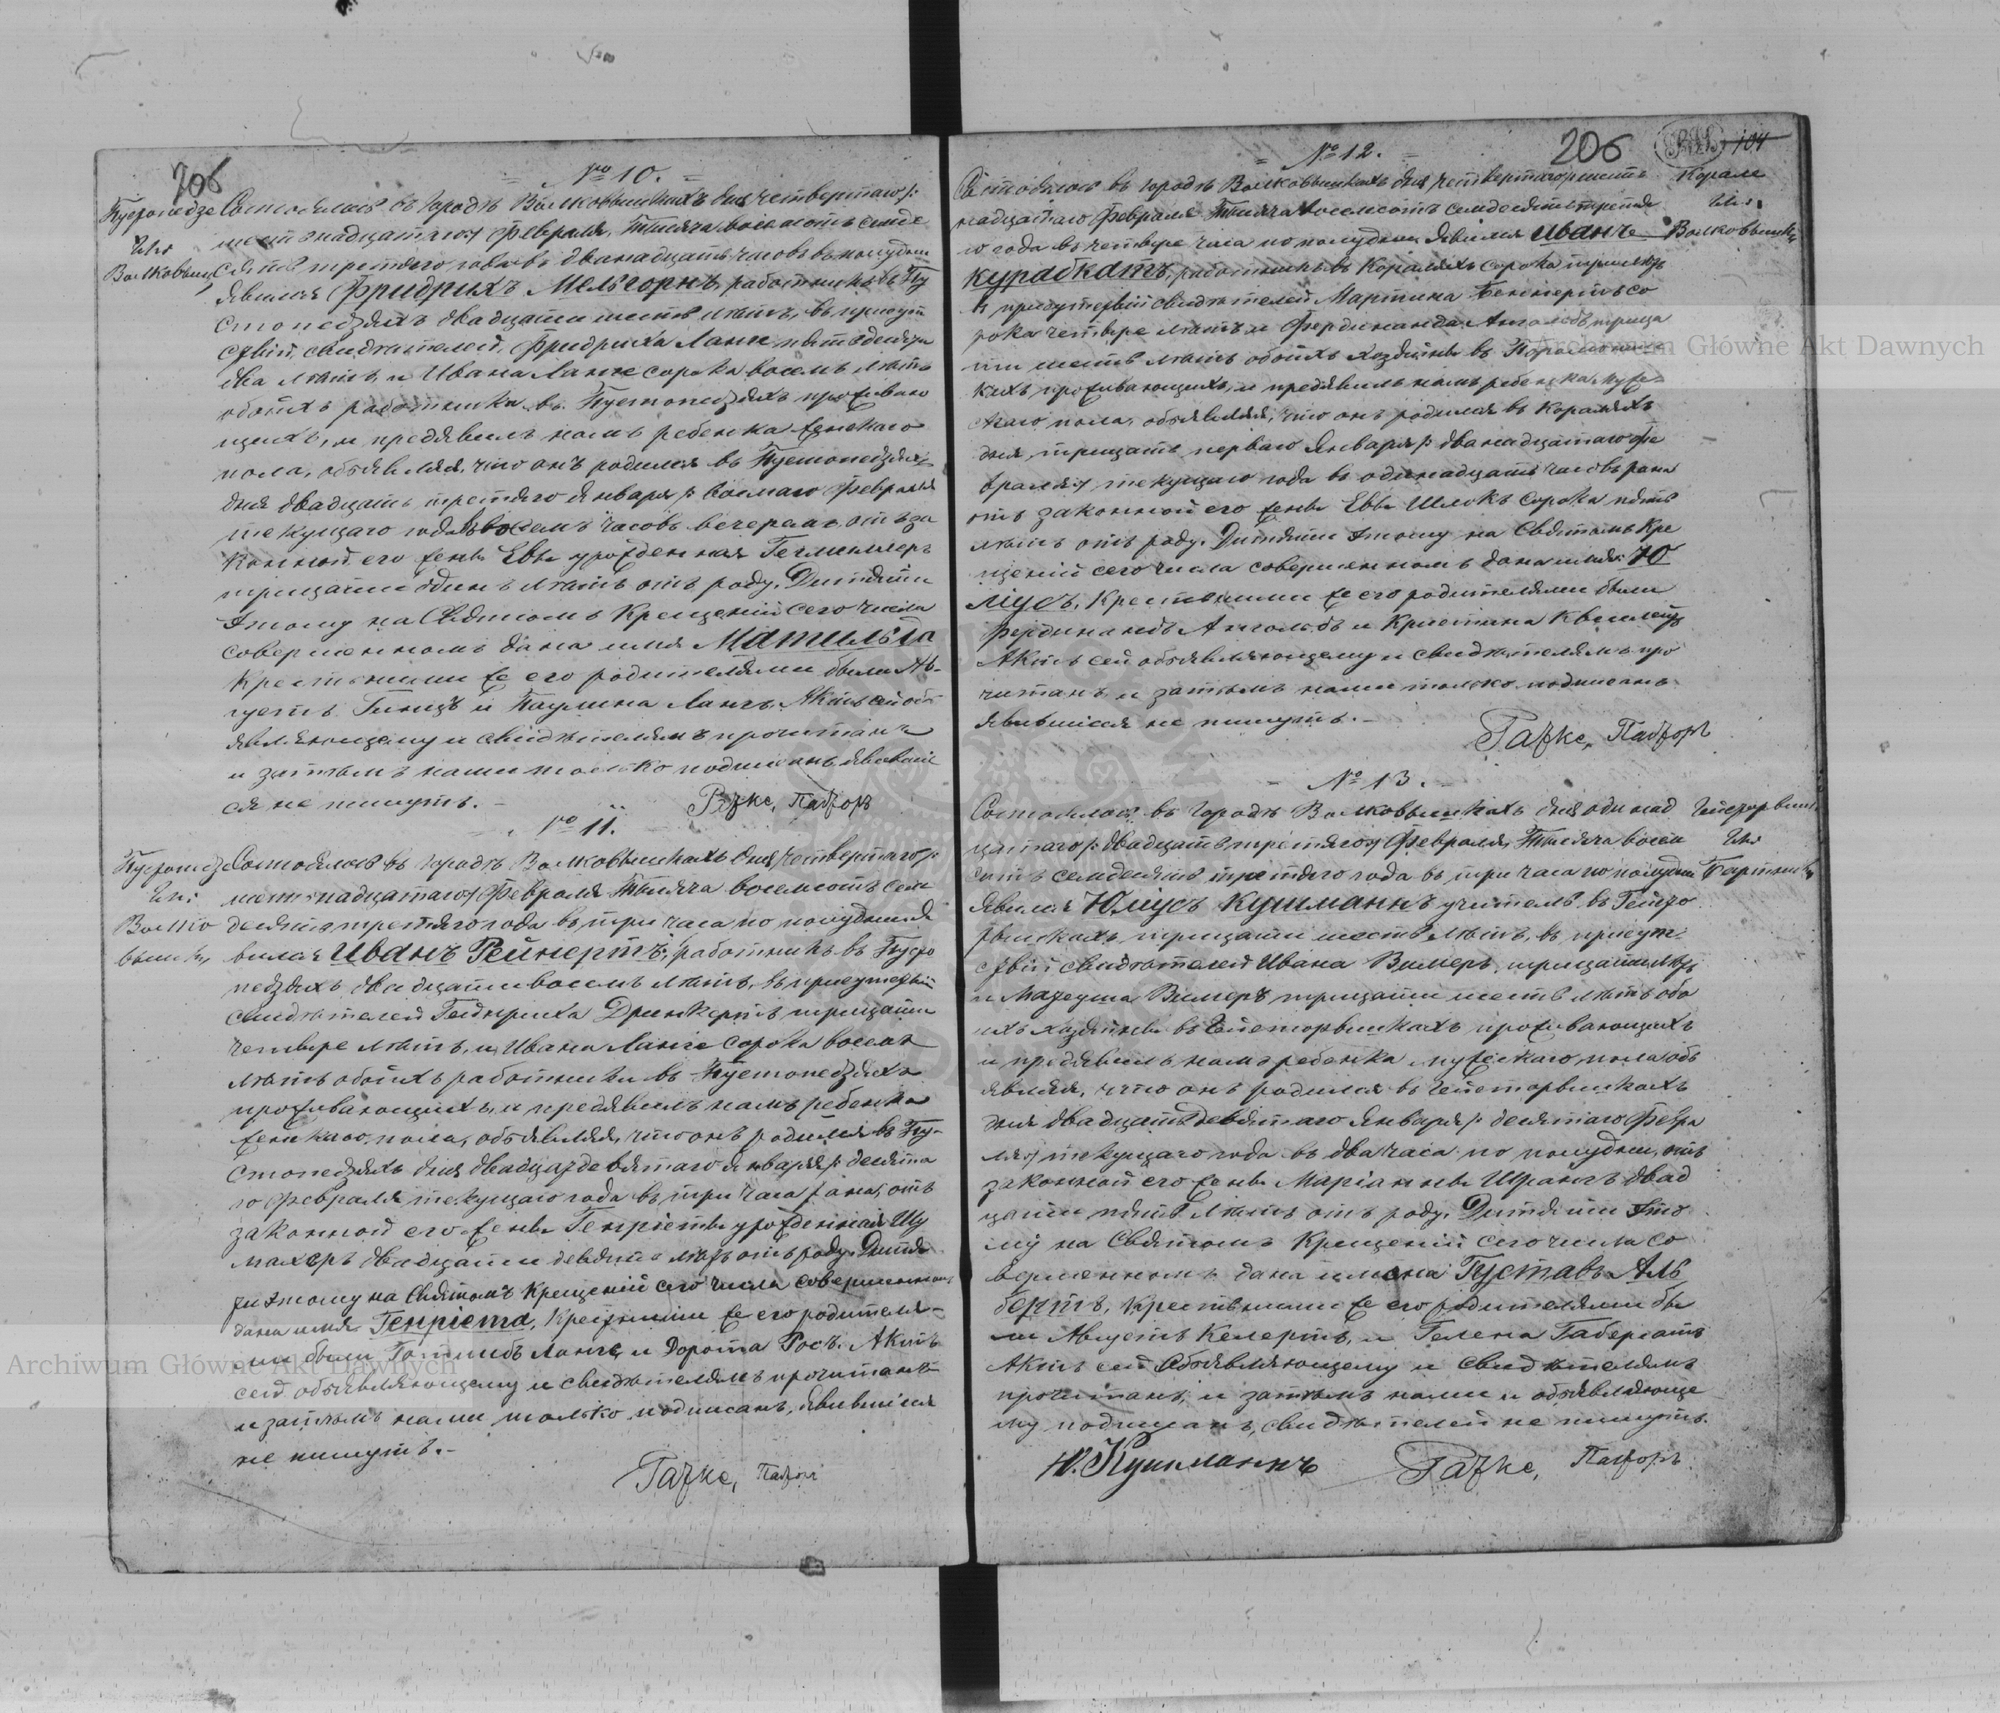 706
№ 10.
Пустопедзе
Гми
Волковыш
Состоялось въ городѣ Волковышкахъ дня четвертаго /:
шестьнадцатаго:/ Февраля, Тысяча восемьсотъ семде
сятъ третьяго года въ двѣнадцать часовъ въ полудни
явился Фридрихъ Мельгорнъ, работникъ въ Пу
стопедзяхъ двадцати шести лѣтъ, въ присут
ствіи свидѣтелей, Фридриха Ланге пятьдесятъ
два лѣтъ и Ивана Ланге сорока восемь лѣтъ
обоихъ работника въ Пустопедзяхъ прожываю
щихъ, и предъявилъ намъ ребенка женскаго
пола, объявляя, что онъ родился въ Пустопедзяхъ
дня двадцать третьяго Января /: восмаго Февраля
текущаго года въ восемъ часовъ вечеромъ, отъ за
конной его жены Евы урожденная
трицати одинъ лѣтъ отъ роду. Дитяти
этому на Святомъ Крещеніи сего числа
совершенномъ дано имя Матильда
Крестными же его родителями были Ав-
густъ и Паулина Ланге. Актъ сей объ
являющему и свидѣтелямъ прочитанъ
и затѣмъ нами только подписанъ, явившіе
ся не пишутъ. -
Разке, Пасторъ
№ 11.
Пустопедзе
Гми:
Волко
вышк,
Состоялось въ городѣ Волковышкахъ дня четвертаго /:
шестьнадцатаго:/ Февраля Тысяча восемсотъ сем
десятъ третьяго года въ три часа по полудни я
вился Иванъ Рейнертъ, работникъ въ Пусто
педзяхъ двадцати восемь лѣтъ, въ присутствіи
свидѣтелей Гейнриха Дринкертъ трицати
четыре лѣтъ, и Ивана Ланге сорока восемъ
лѣтъ обоихъ работники въ Пустопедзяхъ
прожывающихъ, и предъявилъ намъ ребенка
женскаго пола, объявляя, что онъ родился въ Пу-
стопедзяхъ дня двадцать девятаго Января /: десята
го Февраля текущаго года въ три часа рано, отъ
законной его жены Генріеты урожденная Шу
махеръ двадцати девять лѣтъ отъ роду. Дитя
ти этому на Святомъ Крещеніи сего числа совершенномъ
дано имя Генріета, Крестными же его родителя-
ми были Готлибъ Ланге, и Дорота Росъ. Актъ
сей объявляющему и свидѣтелямъ прочитанъ
и затѣмъ нами только подписанъ, явившіися
не пишутъ. -
Разке, Пасторъ
206
104
№ 12.
Корале
Гми.
Волковышки
Состоялось въ городѣ Волковышкахъ дня четвертаго /: шесть
надцатаго Февраля Тысяча восемсотъ семдесятъ третья
го года въ четыре часа по полудни явился Иванъ
Курапкатъ, работникъ въ Кораляхъ сорока три лѣтъ
въ присутствіи свидѣтелей Мартина со
рока четыре лѣтъ и Фердинанда трица
ти шесть лѣтъ обоихъ хозяины въ
кахъ прожывающихъ, и предъявилъ намъ ребенка мужс-
каго пола, объявляя, что онъ родился въ Кораляхъ
дня трицать перваго Января /: двѣнадцатаго Фе
враля:/ текущаго года въ одинадцать часовъ рана
отъ законной его жены Евы Шлокъ сорока пять
лѣтъ отъ роду. Дитяти этому на Святомъ Кре
щеніи сего числа совершенномъ дано имя: Ю
ліусъ, Крестными же его родителями были
Фердинандъ и Кристина
Актъ сей объявляющему и свидѣтелямъ про
читанъ и затѣмъ нами только подписанъ
явившіися не пишутъ. -
Разке, Пасторъ
№ 13.
Гми
Состоялось въ городѣ Волковышкахъ дня одинад
цатаго /: двадцать третьяго:/ Февраля, Тысяча восем
сотъ семдесятъ третьяго года въ три часа по полудни
явился Юліусъ Кушманнъ учитель въ
трицати шесть лѣтъ, въ присут-
ствіи свидѣтелей Ивана Вимеръ, трицати лѣтъ
и Вимеръ трицати шесть лѣтъ обо
ихъ хозяины въ прожывающихъ
и предъявилъ намъ ребенка мужескаго пола объ
являя, что онъ родился въ
дня двадцать девятаго Января /: десятаго Февра
ля:/ текущаго года въ два часа по полудни, отъ
законной его жены Маріанны Шранкъ двад
цати пять лѣтъ отъ роду. Дитяти это
му на Святомъ Крещеніи сего числа со
вершенномъ дано имена: Густавъ Аль
бертъ, Крестными же его родителями бы
ли Августъ Келертъ, и Гелена
Актъ сей объявляющему и свидѣтелямъ
прочитанъ, и затѣмъ нами и объявляюще
му подписанъ, свидѣтелей не пишутъ.
Ю. Кушманнъ
Разке, Пасторъ
Archiwum Główne Akt Dawnych
Archiwum Główne Akt Dawnych